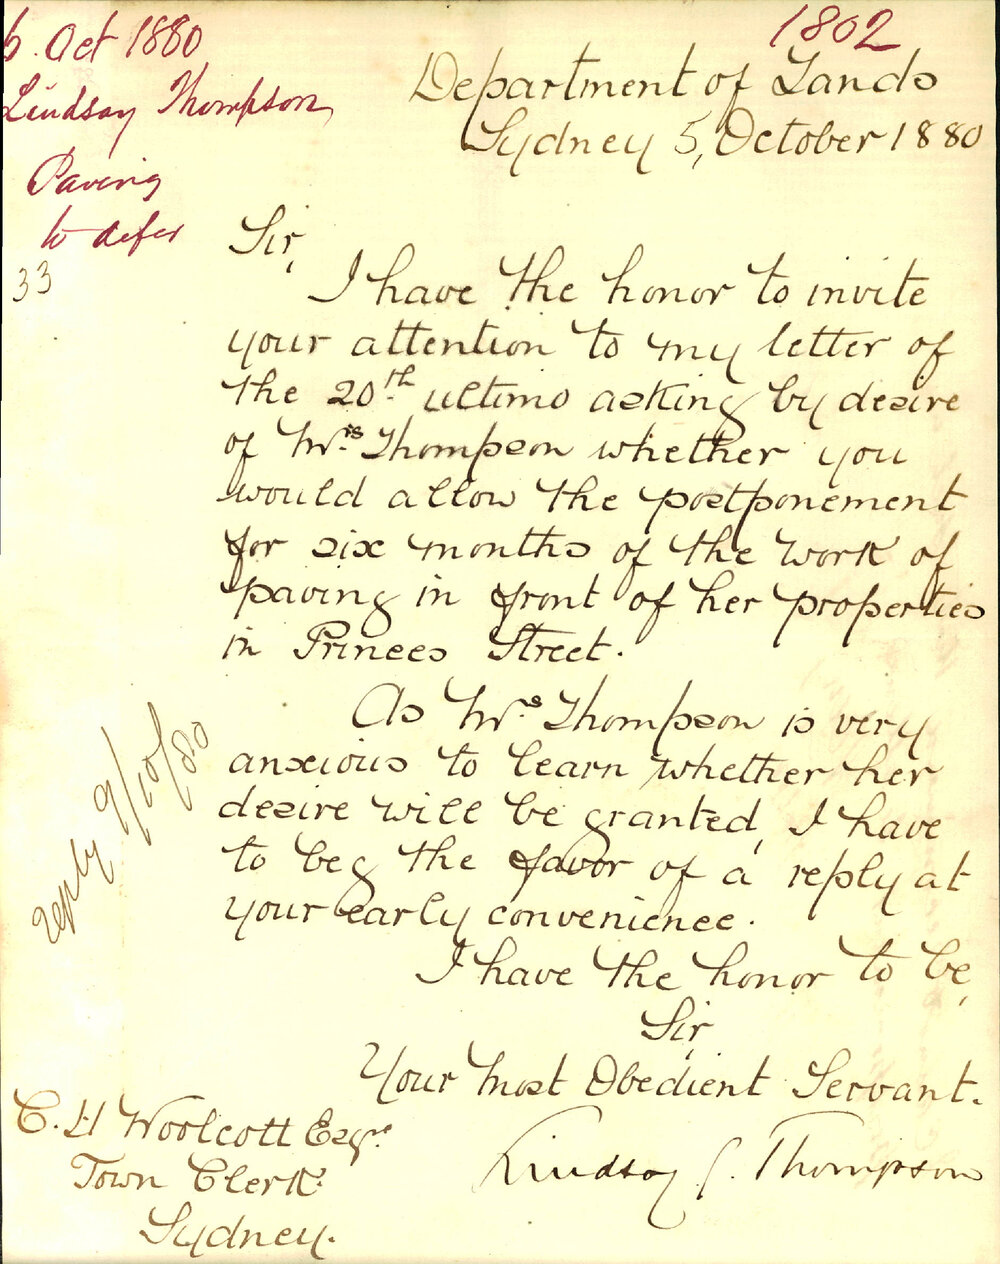 6. Oct 1880
Lindsay Thompson
Paving
to defer
33
1802
Department of Lands
Sydney 5, October 1880
Sir,
I have the honor to invite
your attention to my letter of
the 20th ultimo asking by desire
of Mrs. Thompson whether you
would allow the postponement
for six months of the work of
paving in front of her properties
in Princes Street.
As Mrs. Thompson is very
anxious to learn whether her
desire will be granted, I have
to beg the favor of a reply at
your early convenience.
I have the honor to be,
Sir,
Your Most Obedient Servant.
Lindsay G. Thompson
reply 9/10/80
C. H Woolcott Esqre.
Town Clerk
Sydney.